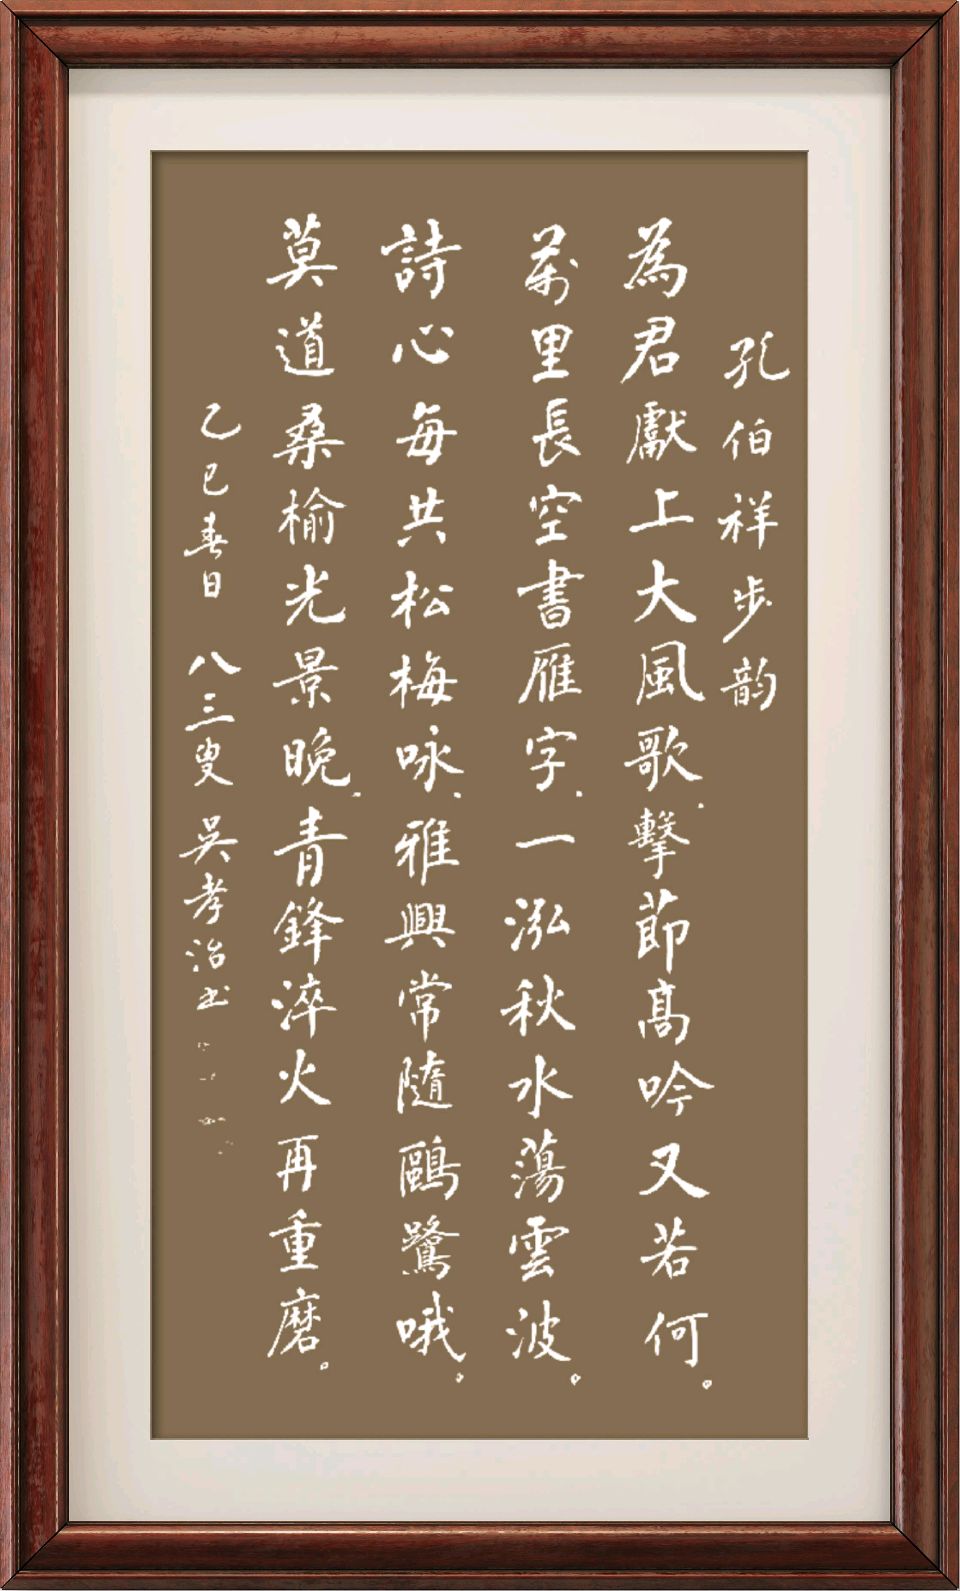 孔伯祥步韵
為君獻上大風歌.擊節高吟又若何。
萬里長空書雁字.一泓秋水蕩雲波。
詩心每共松梅咏.雅興常隨鷗鷺哦。
莫道桑榆光景晚.青鋒淬火再重磨。
乙巳春日 八三叟 吳孝治书